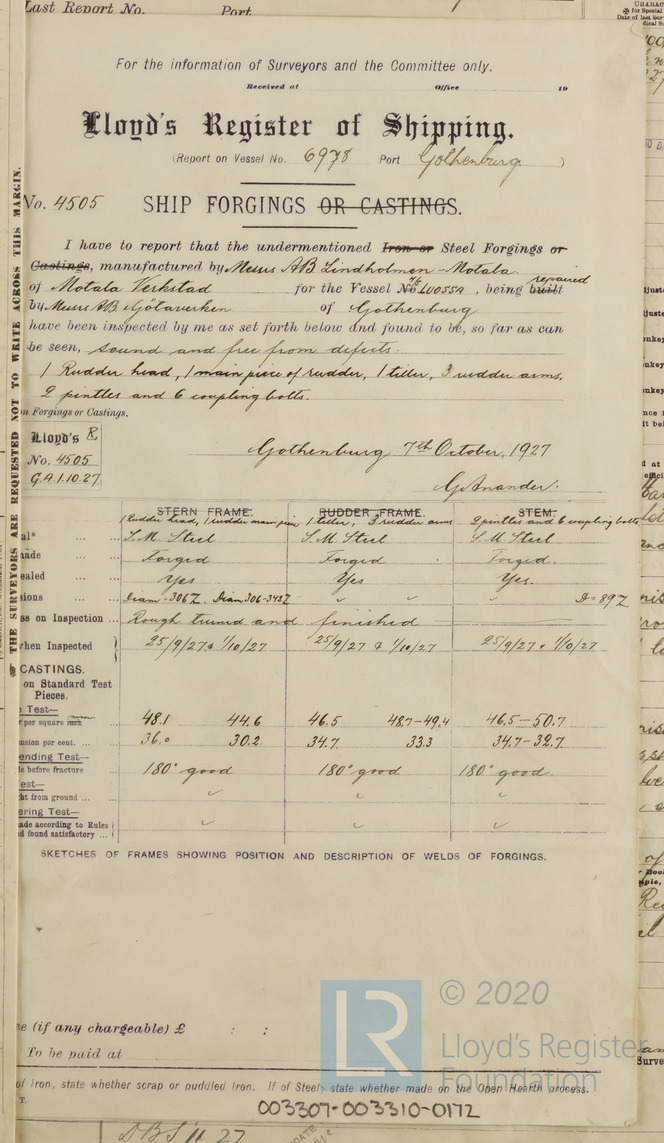 Last Report No. Port
For the information of Surveyors and the Committee only.
Received at Office 19
Lloyd's Register of Shipping.
(Report on Vessel No. 6978 Port Gothenburg )
No. 4505 SHIP FORGINGS OR CASTINGS.
I have to report that the undermentioned Iron or Steel Forgings or
Castings, manufactured by Messrs AB Lindholmen-Motala.
repaired
of Motala Verkstad for the Vessel No. , being built
by Messrs AB Götaverken of Gothenburg
have been inspected by me as set forth below and found to be, so far as can
be seen, sound and free from defects.
1 Rudder head, 1 main piece of rudder, 1 tiller, 3 rudder arms,
2 pintles and 6 coupling bolts.
n Forgings or Castings.
Lloyd's R
No. 4505
G.A. 1.10.27
Gothenburg 7th October, 1927
G. Anander.
STERN FRAME. RUDDER FRAME. STEM.
1 Rudder head, 1 rudder main piece 1 tiller, 3 rudder arms 2 pintles and 6 coupling bolts
al* ... S.M. Steel S.M. Steel S.M. Steel
ade ... Forged Forged Forged.
ealed ... Yes Yes Yes.
sions ... Diam = 306 Diam 306-342 D=89
ss on Inspection ... Rough turned and finished
when Inspected 25/9/27 & 1/10/27 25/9/27 & 1/10/27 25/9/27 & 1/10/27
CASTINGS.
on Standard Test
Pieces.
Test—
per square inch mm 48.1 44.6 46.5 48.7-49.4 46.5-50.7
nsion per cent. ... 36.0 30.2 34.7 33.3 34.7-32.7
ending Test—
le before fracture 180° good 180° good 180° good
est—
ht from ground ...
ering Test—
ade according to Rules
d found satisfactory ...
SKETCHES OF FRAMES SHOWING POSITION AND DESCRIPTION OF WELDS OF FORGINGS.
ee (if any chargeable) £ : :
To be paid at
of Iron, state whether scrap or puddled iron. If of Steel, state whether made on the Open Hearth process.
T.
003307-003310-0172
THE SURVEYORS ARE REQUESTED NOT TO WRITE ACROSS THIS MARGIN.
LR
© 2020
Lloyd's Register
Foundation